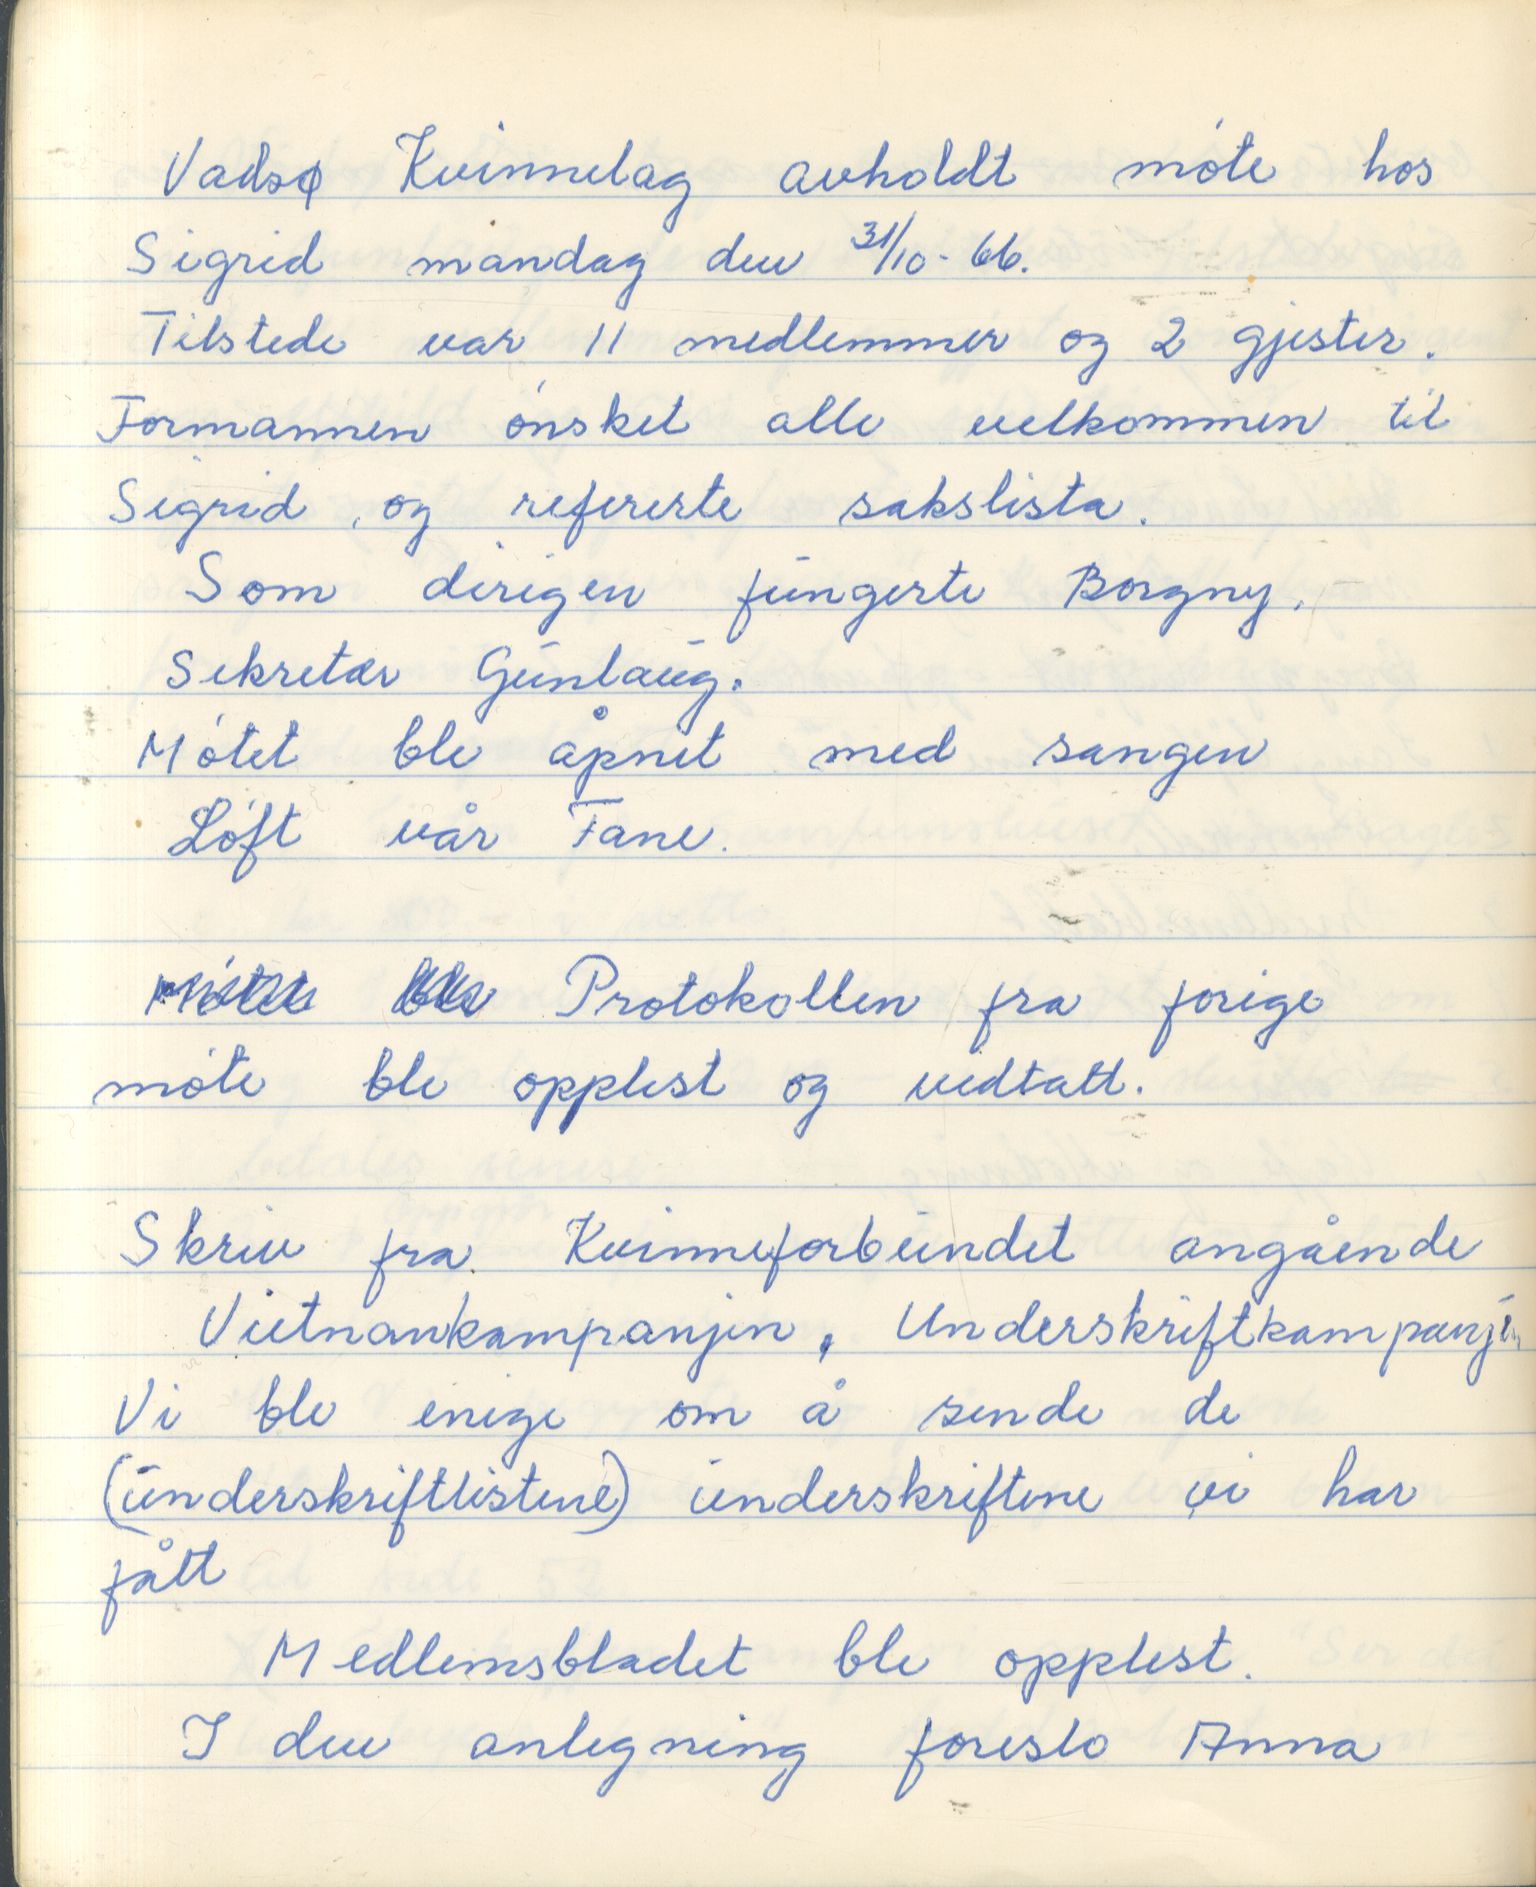 Vadsø Kvinnelag avholdt møte hos
Sigrid mandag den 31/10-66.
Tilstede var 11 medlemmer og 2 gjester.
Formannen ønsket alle velkommen til
Sigrid, og refererte sakslista.
Som dirigen fungerte Borgny,
Sekretær Gunlaug.
Møtet ble åpnet med sangen
Løft vår Fane.
Møtet ble Protokollen fra forige
møte ble opplest og vedtatt.
Skriv fra Kvinneforbundet angående
Vietnankampanjen, Underskriftkampanjen
Vi ble enige om å sende de
(underskriftlistene) underskriftene vi har
fått
Medlemsbladet ble opplest.
I den anlegning foreslo Anna